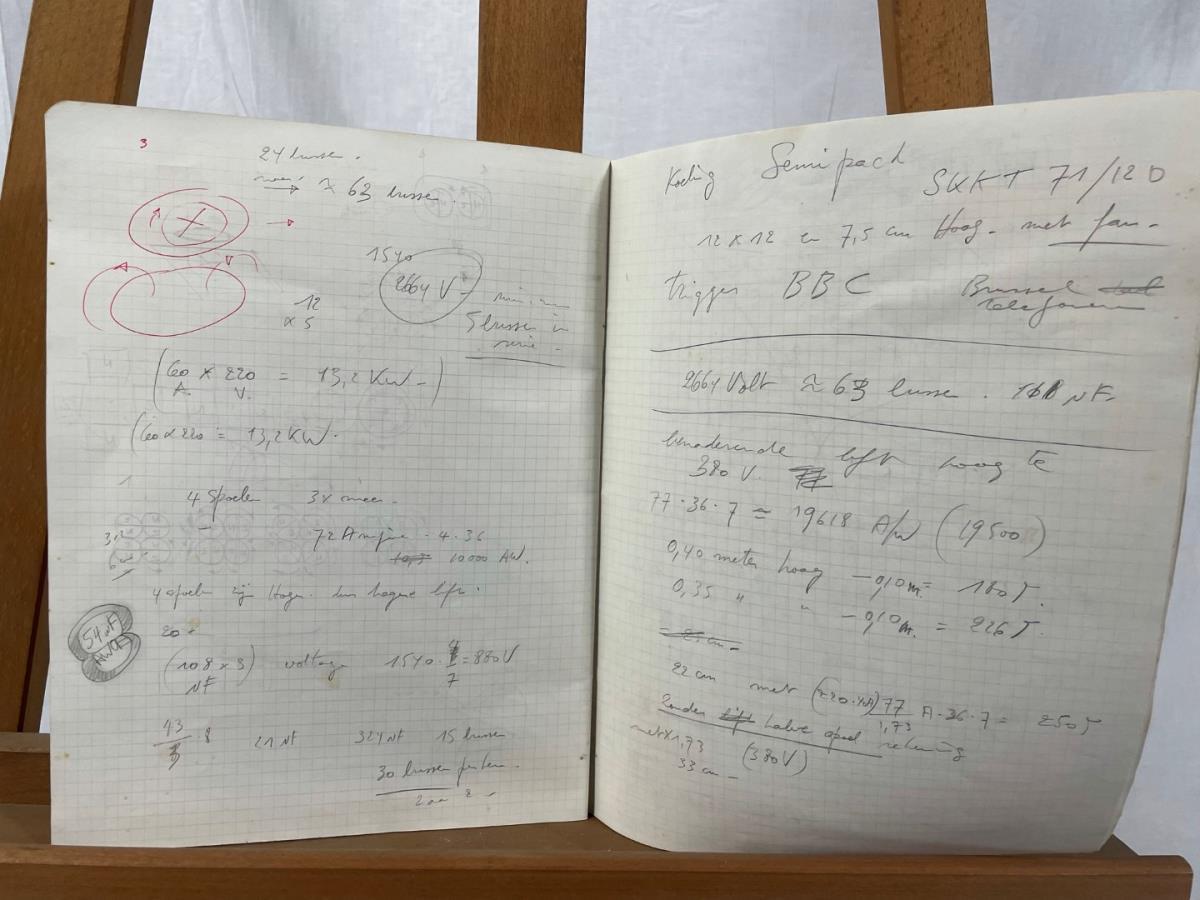 3
24 lussen.
→ ≈ 63 lussen.
1540
2664 V
12
x 5
5 lussen in
serie -
(60 x 220 = 13,2 KW -)
A V.
(60 x 220 = 13,2 KW.
1
4 Spoelen 3x meer.
72 Ampère - 4 . 36
10000 AW.
4 spoelen zijn Hoger. dus hogere lift.
54 µF
20 -
(108 x 3) voltage 1540 . = 880V
µF 7
43 8 21 µF 324 µF 15 lussen
3
30 lussen
Koeling Semipack
SKKT 71/12 D
12 x 12 en 7,5 cm Hoog - met fan -
trigger BBC Brussel
telefoneren
2664 Volt ≈ 63 lussen . µF.
benaderende lift hoogte
380 V.
77 . 36 . 7 ≃ 19618 A/W (19500)
0,40 meter hoog - 0,10 m. = 180 T.
0,35 " " - 0,10 m. = 226 T.
22 cm met 77 A . 36 . 7 = 250 T
1,73
Zonder halve spoel rekening
met x 1,73 (380V)
33 cm -